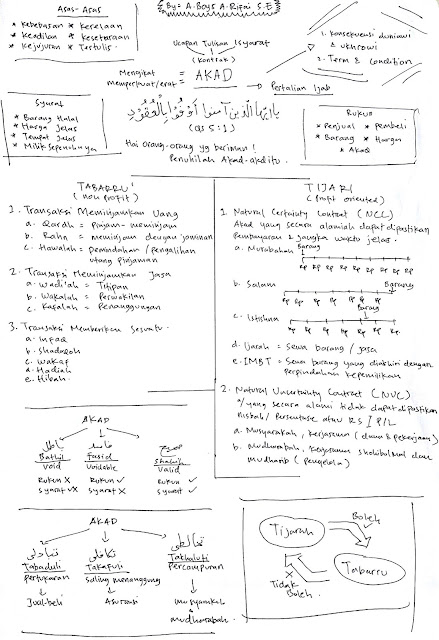 By: A. Boys A. Rifai S.E
Asas-Asas
* Kebebasan * Kerelaan
* Keadilan * Kesetaraan
* Kejujuran * Tertulis
Ucapan Tulisan Isyarat
(Kontrak)
Mengikat
memperkuat/erat = AKAD
Pertalian Ijab
1. Konsekuensi duniawi
& ukhrowi
2. Term & Condition
Syarat
* Barang Halal
* Harga Jelas
* Tempat Jelas
* Milik Sepenuhnya
يا ايها الذين آمنوا أوفوا بالعقود
(QS 5:1)
Hai orang-orang yg beriman!
Penuhilah Akad-akditu.
Rukun
* Penjual * Pembeli
* Barang * Harga
* Akad
TABARRU'
(non profit)
1. Transaksi Meminjamkan Uang
a. Qardh = Pinjam-meminjam
b. Rahn = meminjam dengan jaminan
c. Hawalah = pemindahan/pengalihan
utang pinjaman
2. Transaksi Meminjamkan Jasa
a. Wadi'ah = Titipan
b. Wakalah = Perwakilan
c. Kafalah = Penanggungan
3. Transaksi Memberikan Sesuatu.
a. Infaq
b. Shadaqoh
c. Wakaf
d. Hadiah
e. Hibah.
TIJARI
(Profit oriented)
1. Natural Certainty Contract (NCC)
Akad yang secara alamiah dapat dipastikan
Pembayaran & jangka waktu jelas.
a. Murabahah
Barang
Rp Rp Rp Rp Rp Rp Rp Rp
b. Salam
Barang
Rp Rp Rp Rp Rp Rp
c. Istishna
Barang
Rp Rp Rp Rp Rp Rp Rp Rp
d. Ijarah = Sewa barang / jasa
e. IMBT = Sewa barang yang diakhiri dengan
perpindahan kepemilikan
2. Natural Uncertainty Contract (NUC)
yang secara alami tidak dapat dipastikan
Nisbah / Persentase atau RS / P/L
a. Musyarakah, kerjasama (dana & pekerjaan)
b. Mudharabah, kerjasama shohibul mal dan
mudharib (pengelola)
AKAD
باطل فاسد صحيح
Bathil fasid Shahih
Void Voidable Valid
Rukun X Rukun ✓ Rukun ✓
Syarat ✓X Syarat X Syarat ✓
AKAD
تبادلي تكافلي تخالطي
Tabaduli Takafuli Takhaluti
pertukaran saling menanggung percampuran
Jual-beli Asuransi musyarakah
& mudharabah
Tijarah
Boleh
Tabarru
X
Tidak
Boleh.